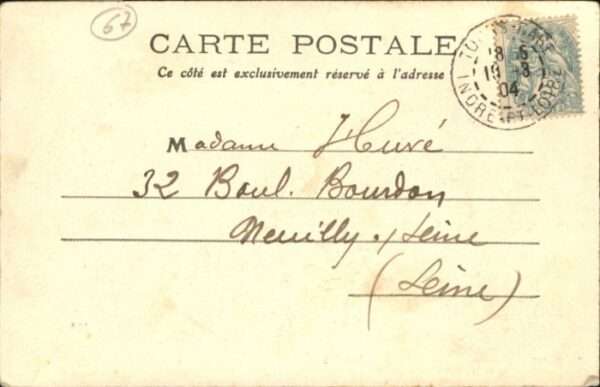 67
CARTE POSTALE
Ce côté est exclusivement réservé à l'adresse
INDRE-ET-LOIRE
18 6
19 3
04
Madame Huré
32 Boul. Bourdon
Neuilly s/Seine
(Seine)